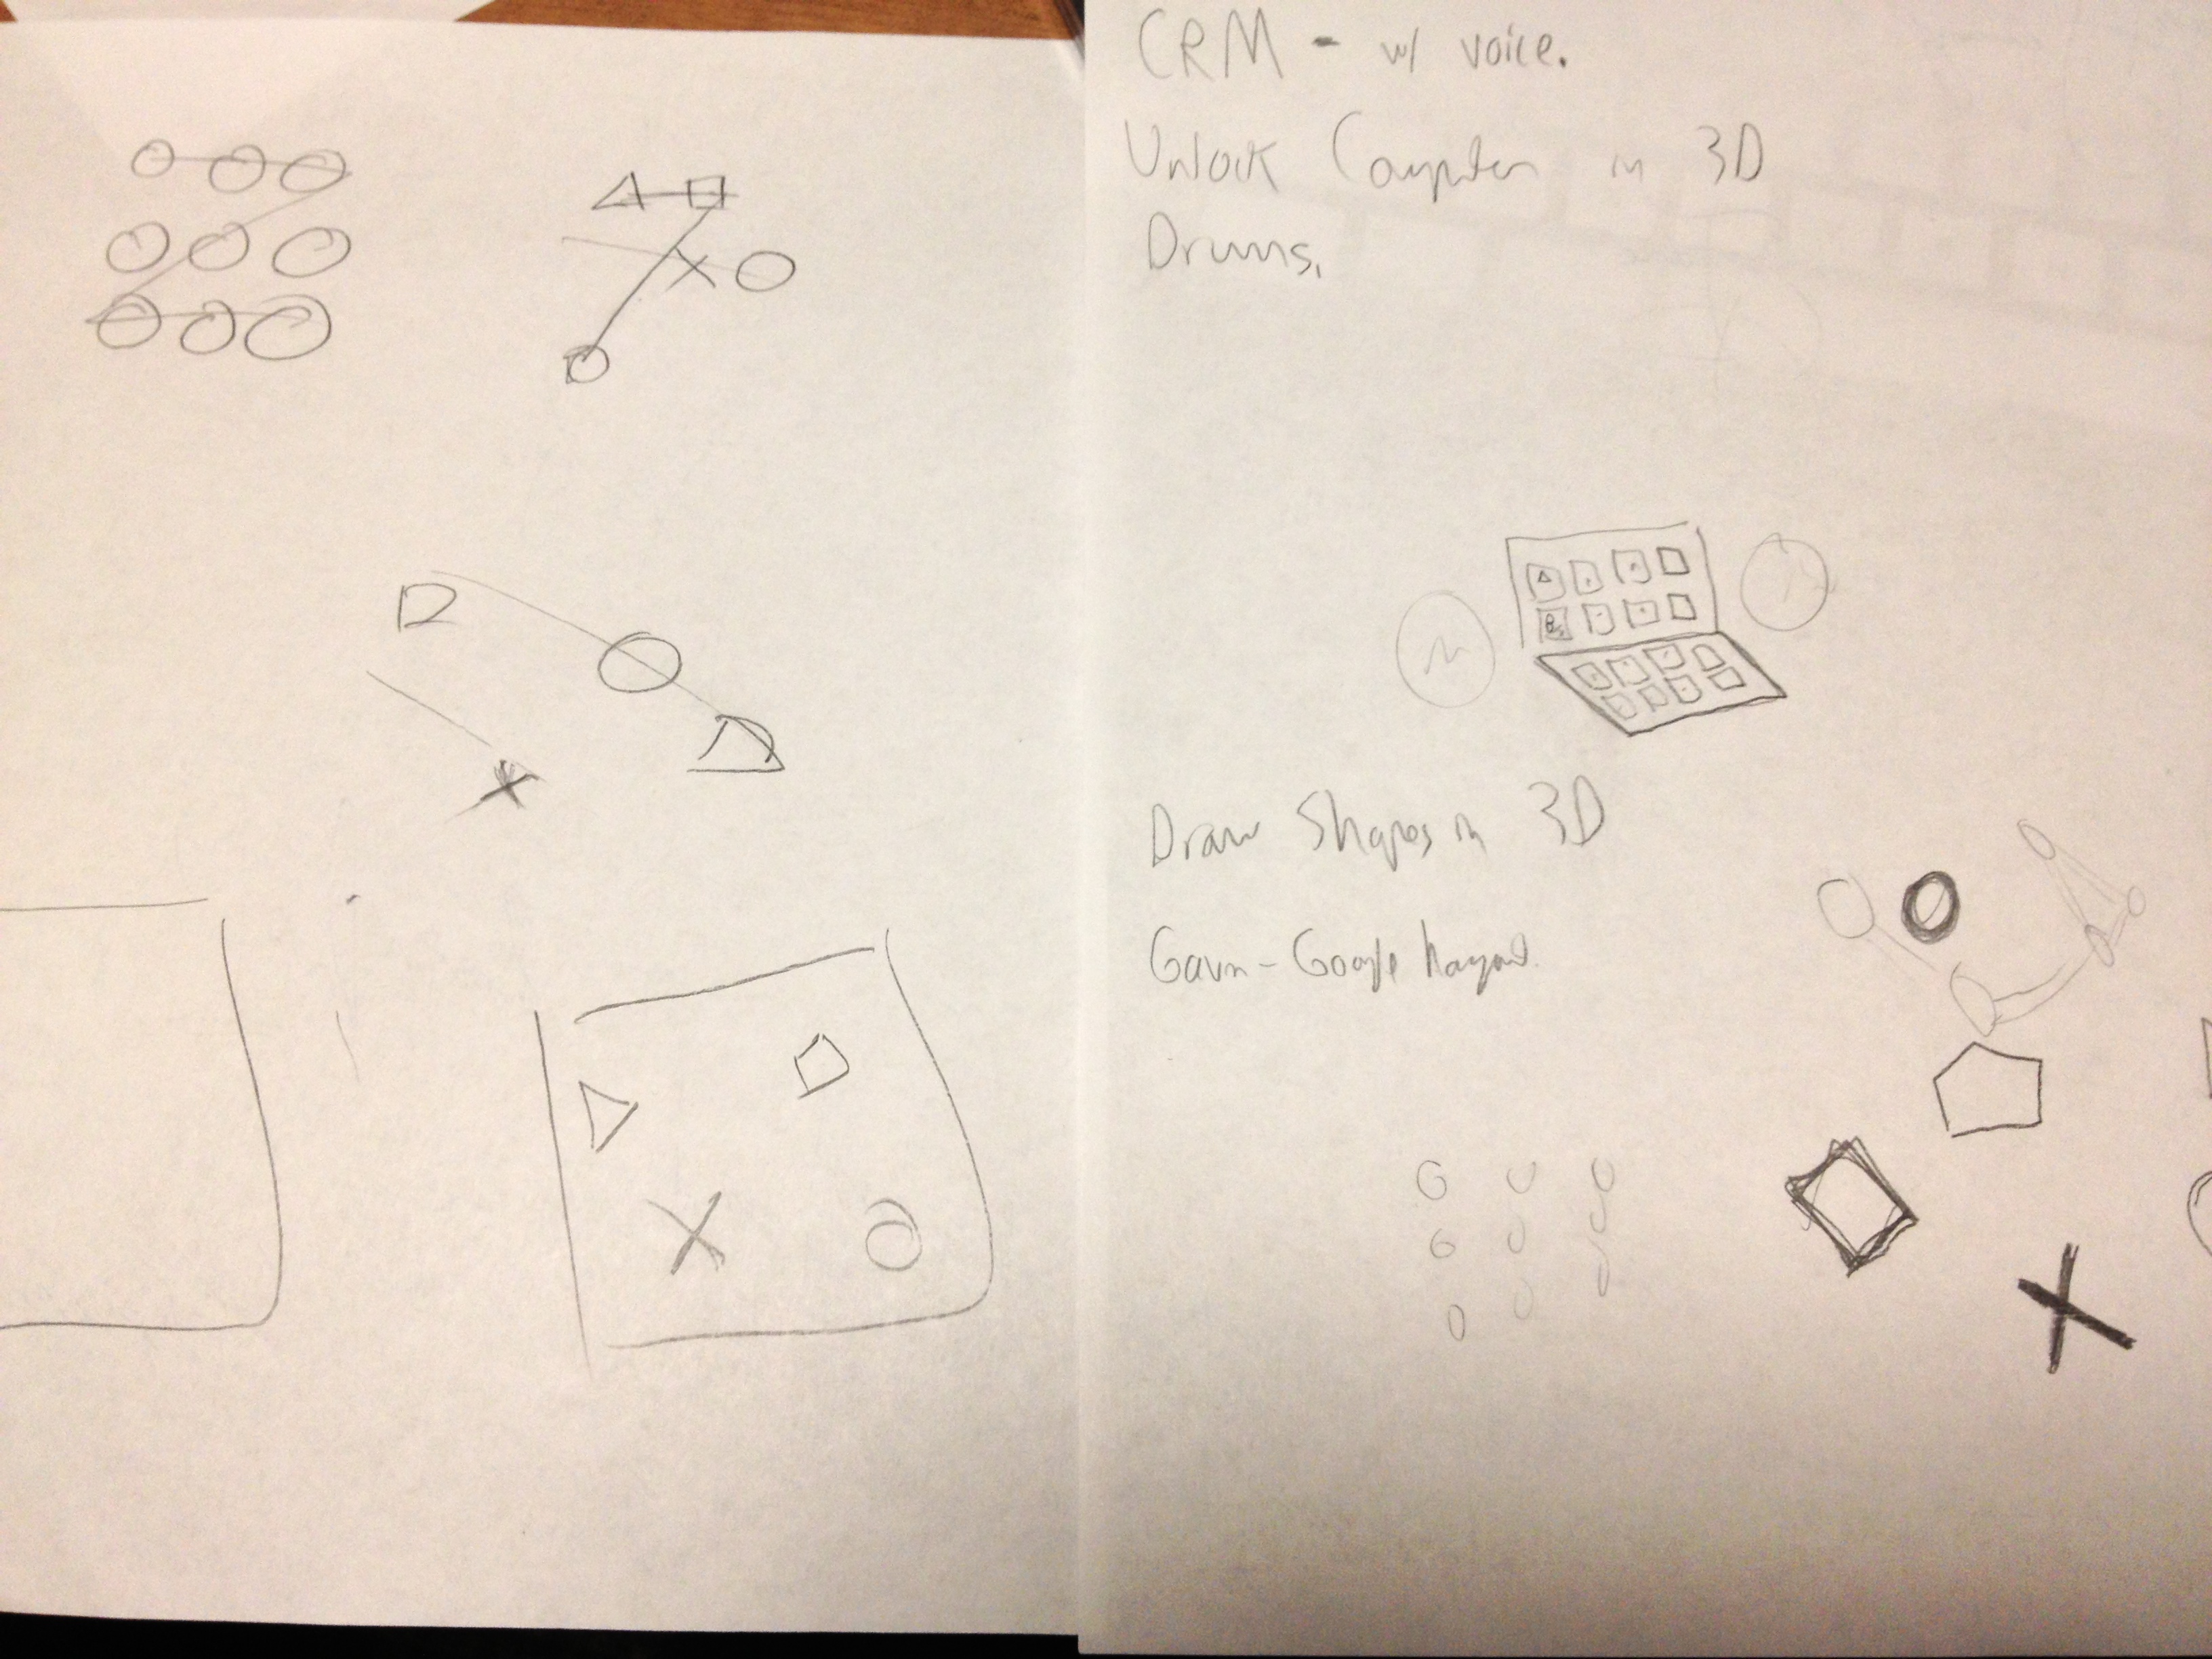 CRM - w/ voice.
Unlock Computer in 3D
Drums.
Draw Shapes in 3D
Gavin - Google